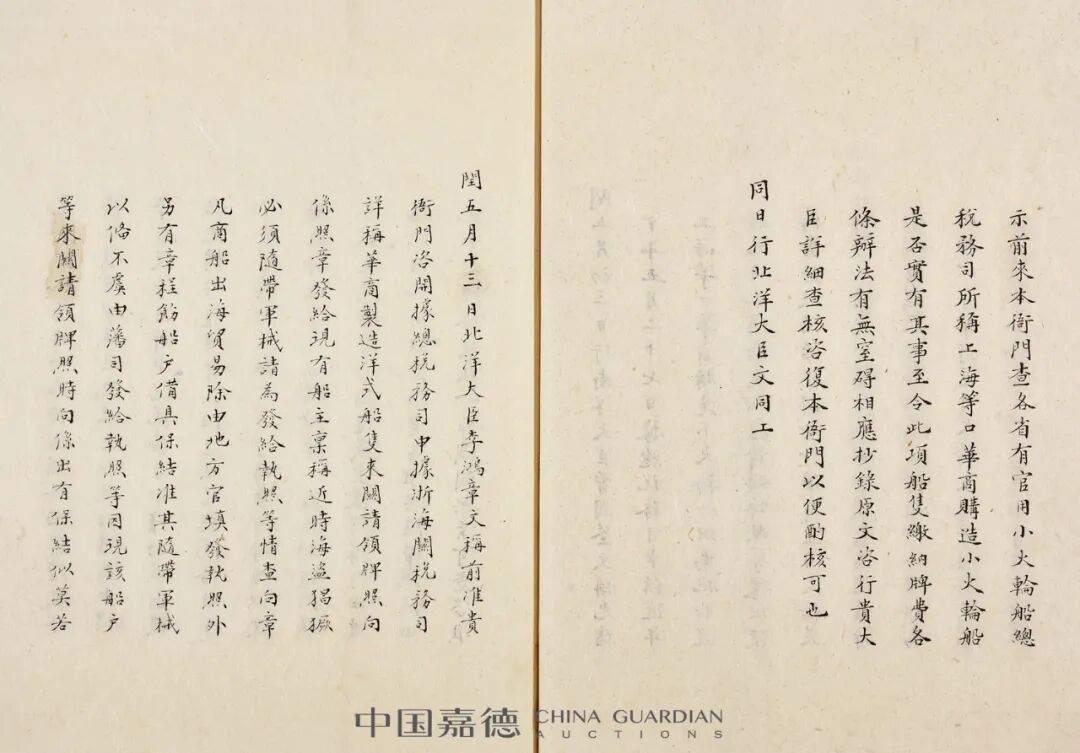 示前來本衙門查各省有官用小火輪船總
稅務司所稱上海等口華商購造小火輪船
是否實有其事至令此項船隻繳納牌費各
條辦法有無窒碍相應抄錄原文咨行貴大
臣詳細查核咨復本衙門以便酌核可也
同日行北洋大臣文同上
閏五月十三日北洋大臣李鴻章文稱前准貴
衙門咨開據總稅務司申據浙海關稅務司
詳稱華商製造洋式船隻來關請領牌照向
係照章發給現有船主稟稱近時海盜猖獗
必須隨帶軍械請為發給執照等情查向章
凡商船出海貿易除由地方官填發執照外
另有章程飭船戶備具保結准其隨帶軍械
以備不虞由藩司發給執照等因現該船戶
等來關請領牌照時向係出有保結似莫若
中国嘉德 CHINA GUARDIAN AUCTIONS